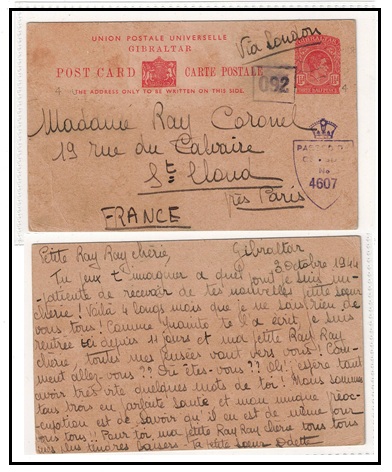 UNION POSTALE UNIVERSELLE
GIBRALTAR.
Via London
GIBRALTAR
POST CARD CARTE POSTALE
THE ADDRESS ONLY TO BE WRITTEN ON THIS SIDE.
4 4
092
Madame Ray Coronel
19 rue du Calvaire
St Cloud
près Paris
FRANCE
PASSED BY
No
4607
Petite Ray Ray chérie, Gibraltar
3 Octobre 1944
Tu peux t'imaguer a quel point je suis im-
patiente de recevoir de tes nouvelles petite soeur
chérie! Voilà 4 longs mois que je ne sais rien de
vous tous! Comme Juanito te l'a écrit, je suis
rentrée ici depuis 11 jours et ma petite Ray Ray
chérie, toutes mes pensées vont vers vous! Com-
ment allez-vous?? Où êtes-vous?? Oh! j'espère tant
avoir très vite quelques mots de toi! Nous sommes
tous trois en parfaite santé et mon unique préoc-
cupation est de savoir qu'il en est de même pour
vous tous!! Pour toi ma petite Ray Ray chérie tous
mes plus tendres baisers. Ta petite soeur Odette